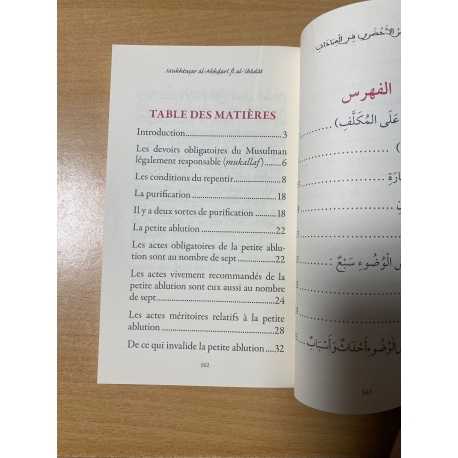 Mukhtaṣar al-Akhḍarî fî al-'Ibâdât
TABLE DES MATIÈRES
Introduction....................3
Les devoirs obligatoires du Musulman
légalement responsable (mukallaf)...6
Les conditions du repentir...............8
La purification..........................18
Il y a deux sortes de purification.....18
La petite ablution......................22
Les actes obligatoires de la petite ablu-
tion sont au nombre de sept.........22
Les actes vivement recommandés de la
petite ablution sont eux aussi au nombre
de sept....................................24
Les actes méritoires relatifs à la petite
ablution..................................28
De ce qui invalide la petite ablution.....32
الفهرس
عَلَى المُكَلَّفِ)
الْوُضُوءِ سَبْعٌ:
الْوُضُوءِ أَحْدَاثٌ وَأَسْبَابٌ